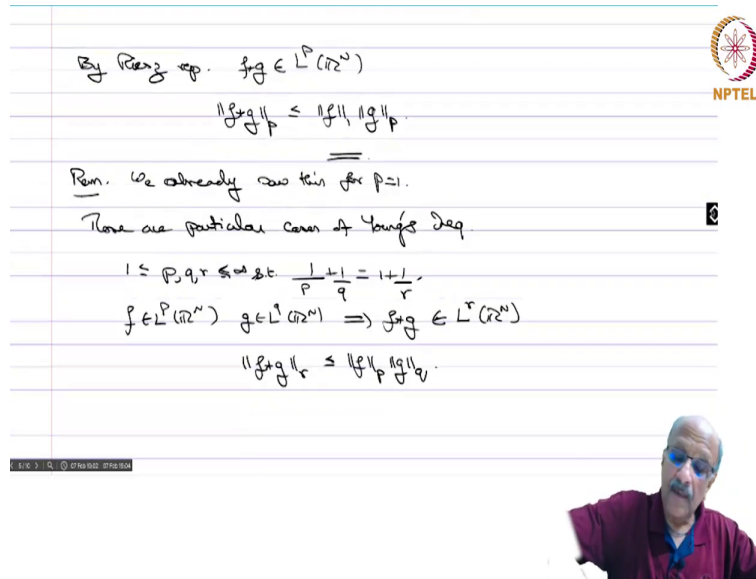 By Riesz rep. f*g ∈ L^p(ℝ^N)
NPTEL
‖f*g‖_p ≤ ‖f‖_1 ‖g‖_p.
Rem. We already saw this for p=1.
These are particular cases of Young's Ineq.
1 ≤ p,q,r ≤ ∞ s.t. 1/p + 1/q = 1 + 1/r.
f ∈ L^p(ℝ^N) g ∈ L^q(ℝ^N) ⇒ f*g ∈ L^r(ℝ^N)
‖f*g‖_r ≤ ‖f‖_p ‖g‖_q.
5/10 07 Feb 15:02 07 Feb 15:04